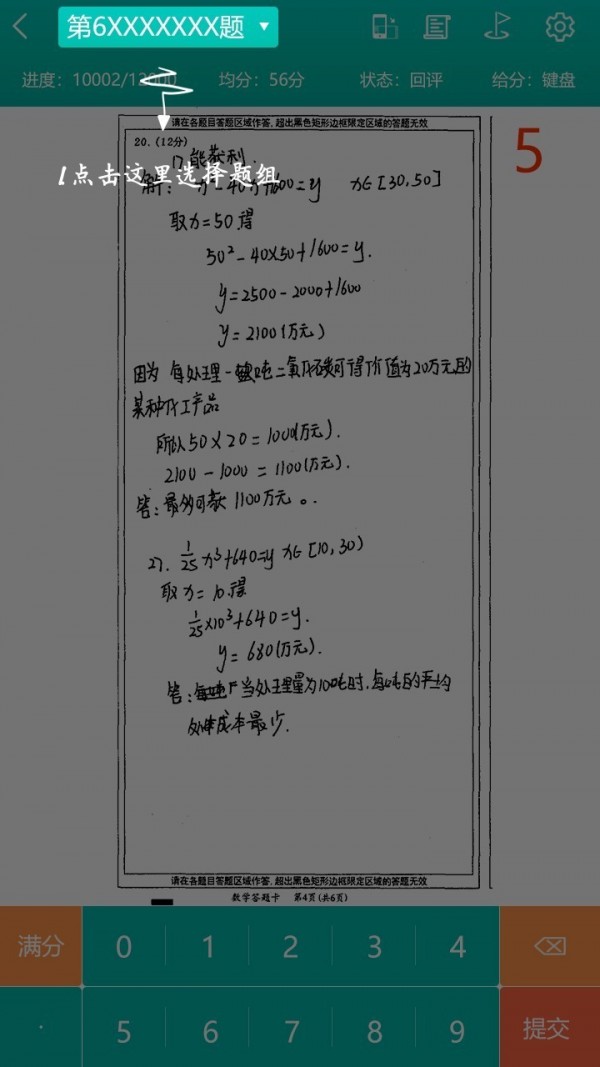 第6XXXXXXX题
进度：10002/12000
均分：56分
状态：回评
给分：键盘
请在各题目答题区域作答，超出黑色矩形边框限定区域的答题无效
20．（12分）
5
1点击这里选择题组
17. 能获利．
解： x² - 40x + 1600 = y x∈[30,50]
取x=50 得
50² - 40×50 + 1600 = y.
y = 2500 - 2000 + 1600
y = 2100 (万元)
因为 每处理一吨二氧化碳可得价值为20万元的
某种化工产品
所以 50 × 20 = 1000(万元).
2100 - 1000 = 1100(万元).
答：最多可获 1100万元。.
27. 1/25 x³ + 640 = y x∈[10,30)
取 x = 10.得
1/25 × 10³ + 640 = y.
y = 680(万元).
答： 当处理量为10吨时，每吨的平均
处理成本最少.
请在各题目答题区域作答，超出黑色矩形边框限定区域的答题无效
数学答题卡 第4页(共6页)
满分 0 1 2 3 4
. 5 6 7 8 9 提交